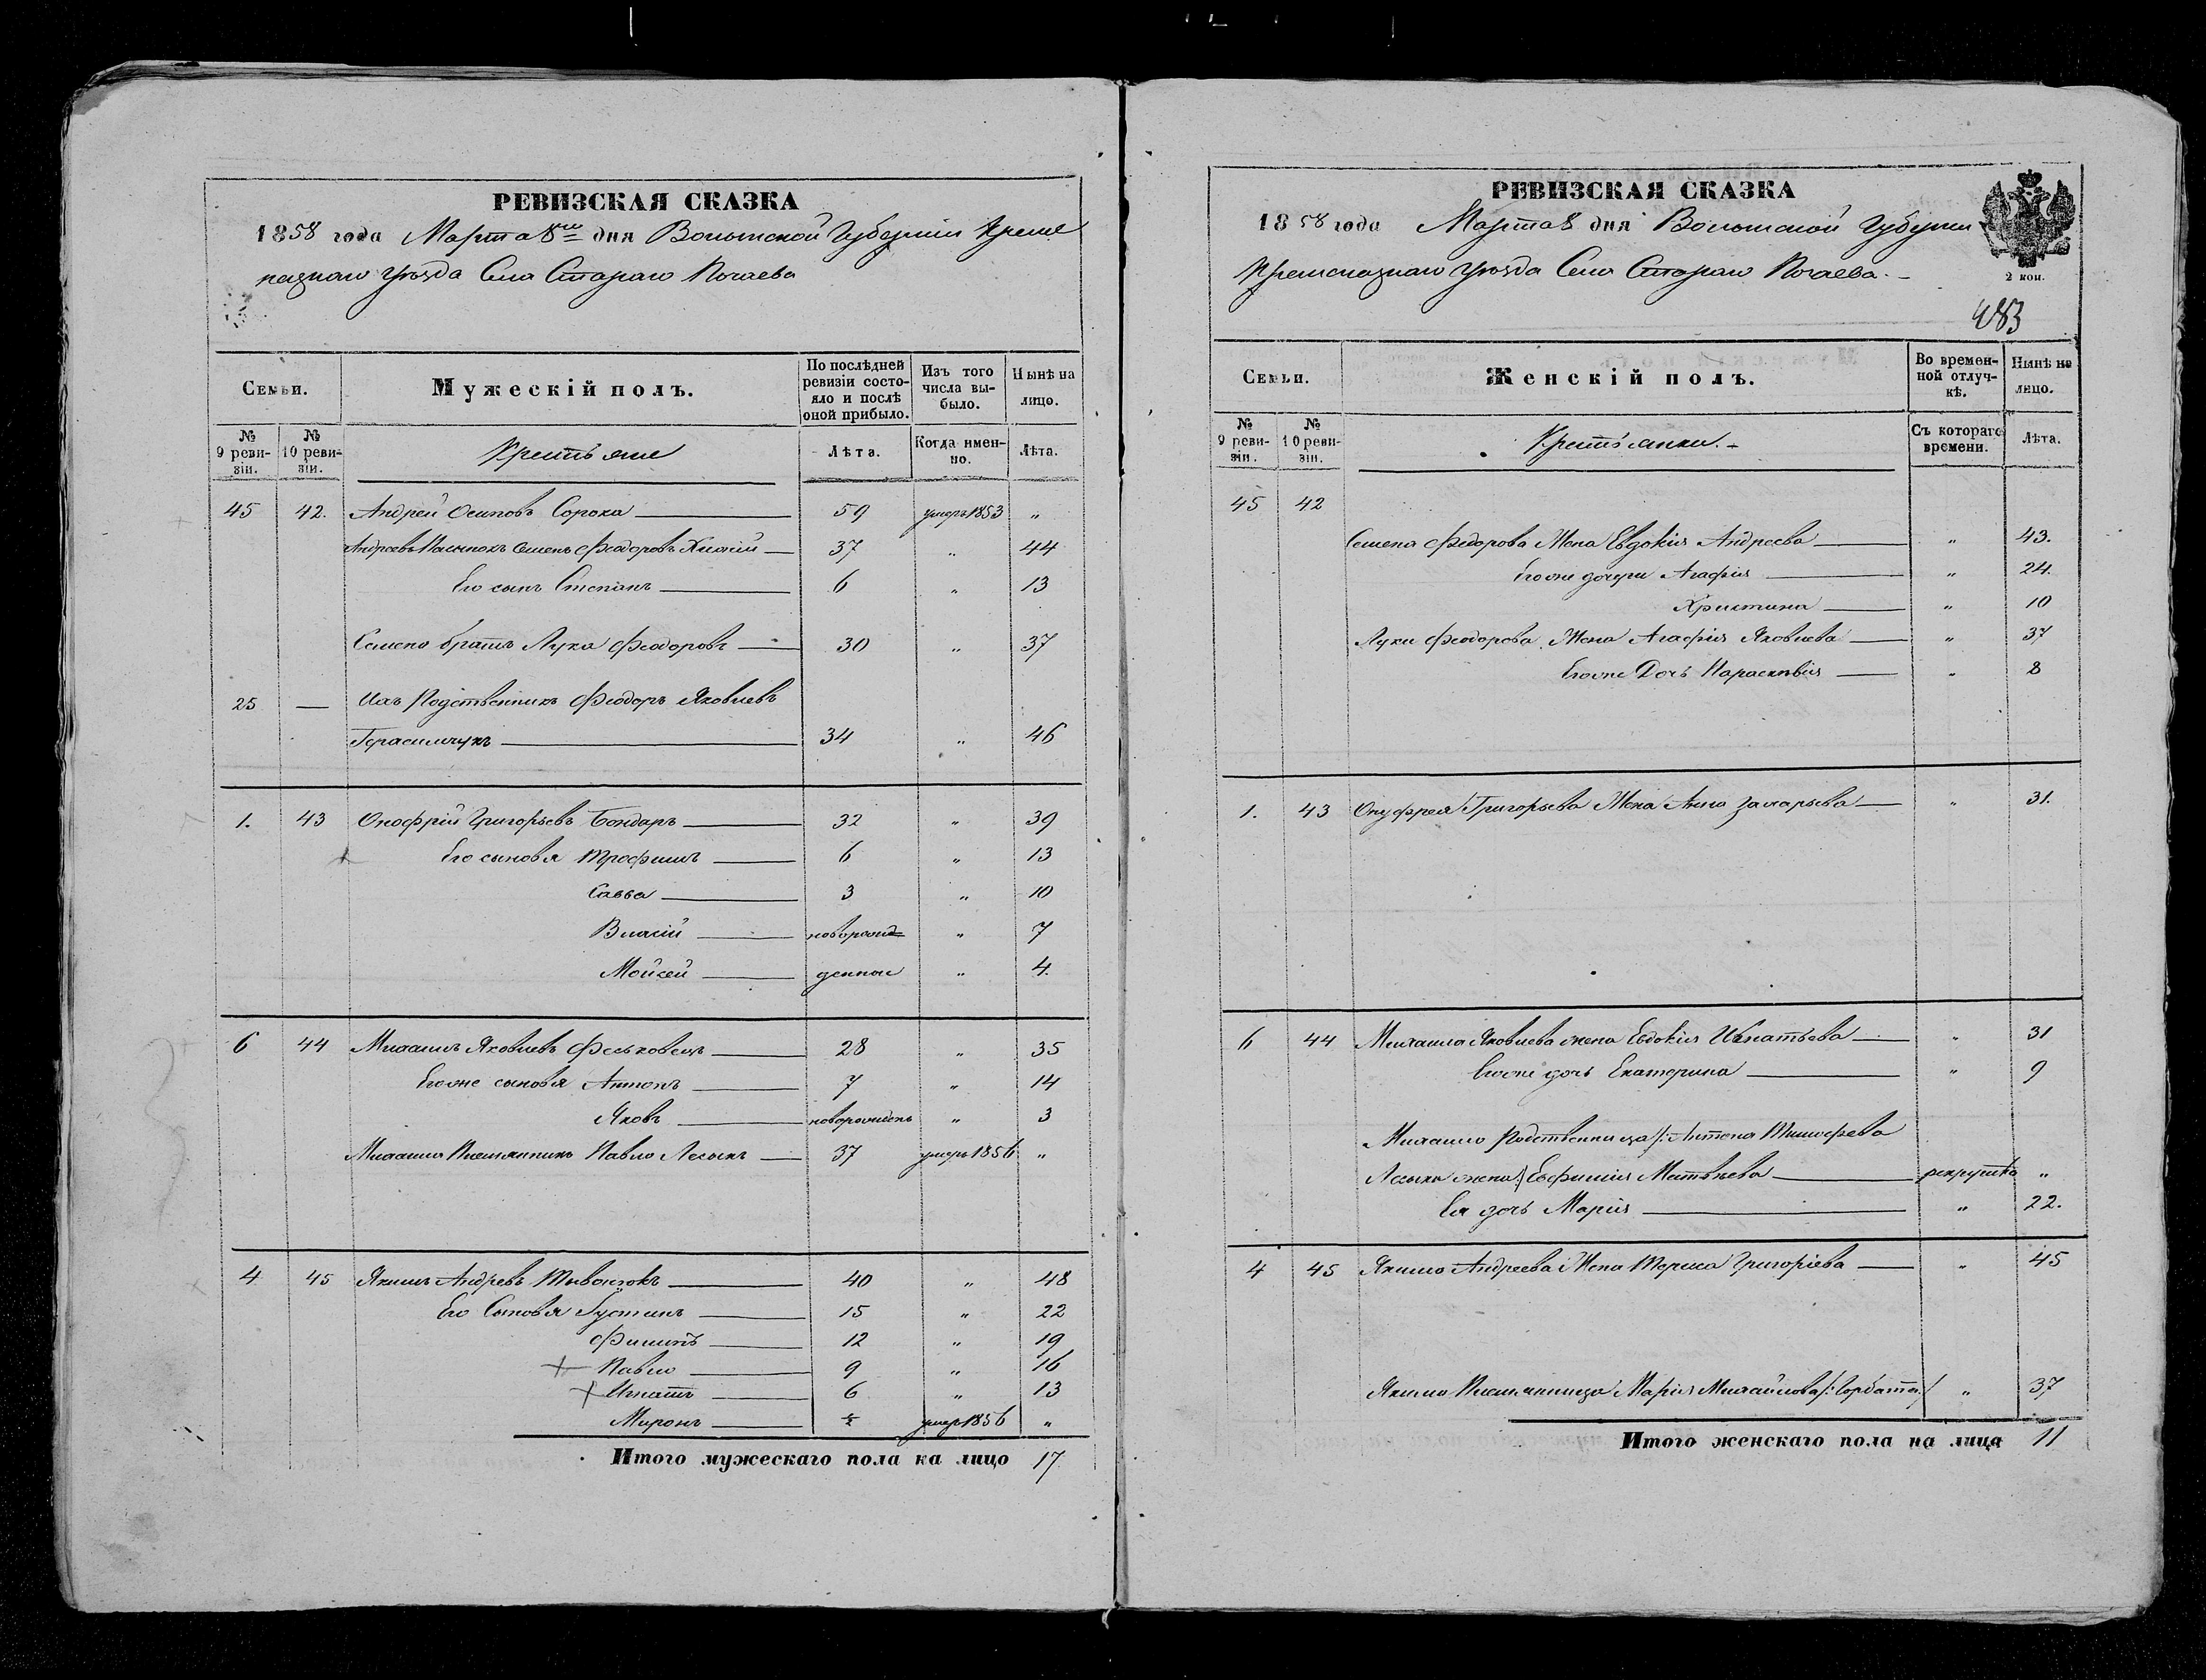 РЕВИЗСКАЯ СКАЗКА
1858 года Марта 8го дня Волынской Губернии Креме
нецкаго уѣзда Села Стараго Почаева
Семьи.
Мужескій полъ.
По послѣдней ревизіи состояло и послѣ оной прибыло.
Изъ того числа выбыло.
Нынѣ на лицо.
№ 9 ревизіи.
№ 10 ревизіи.
Крестьяне
Лѣта.
Когда именно.
Лѣта.
45 42. Андрей Осиповъ Сорока 59 умеръ 1853 "
Андреевъ Пасынокъ Семенъ Феодоровъ 37 " 44
Его сынъ Степанъ 6 " 13
Семена братъ Лука Феодоровъ 30 " 37
25 — Ихъ Родственникъ Феодоръ Яковлевъ
Герасимчукъ 34 " 46
1. 43 Онофрій Григорьевъ Бондарь 32 " 39
Его сыновья Трофимъ 6 " 13
Савва 3 " 10
Власій новорож " 7
Мойсей денные " 4.
6 44 Михаилъ Яковлевъ Феськовецъ 28 " 35
Его же сыновья Антонъ 7 " 14
Яковъ новорожденъ " 3
Михаила Племянникъ Павло Лесыкъ 37 умеръ 1856 "
4 45 Якимъ Андреевъ 40 " 48
Его Сыновья Густинъ 15 " 22
Филипъ 12 " 19
Павло 9 " 16
Игнатъ 6 " 13
Миронъ умеръ 1856 "
Итого мужескаго пола на лицо 17
РЕВИЗСКАЯ СКАЗКА
1858 года Марта 8 дня Волынской Губерни
Кременецкаго уѣзда Села Стараго Почаева.
2 коп.
483
Семьи.
Женскій полъ.
Во временной отлучкѣ.
Нынѣ на лицо.
№ 9 ревизіи.
№ 10 ревизіи.
Крестьянки.
Съ котораго времени.
Лѣта.
45 42
Семена Федорова Жена Евдокія Андреева " 43.
Его же дочери Агафія " 24.
Христина " 10
Луки Феодорова Жена Агафія Яковлева " 37
Его же Дочь Параскевія " 8
1. 43 Онуфрея Григорьева Жена Анна Захарьева " 31.
6 44 Михаила Яковлева жена Евдокія Игнатьева " 31
Его же дочь Екатерина " 9
Михаила Родственница /: Антона Тимофеева
Лесыка жена :/ Евфимія Матвѣева рекрутка "
Ея дочь Марія " 22.
4 45 Якима Андреева Жена Тереса Григоріева " 45
Якима Племянница Марія Михайлова /: Горбатая :/ " 37
Итого женскаго пола на лица 11